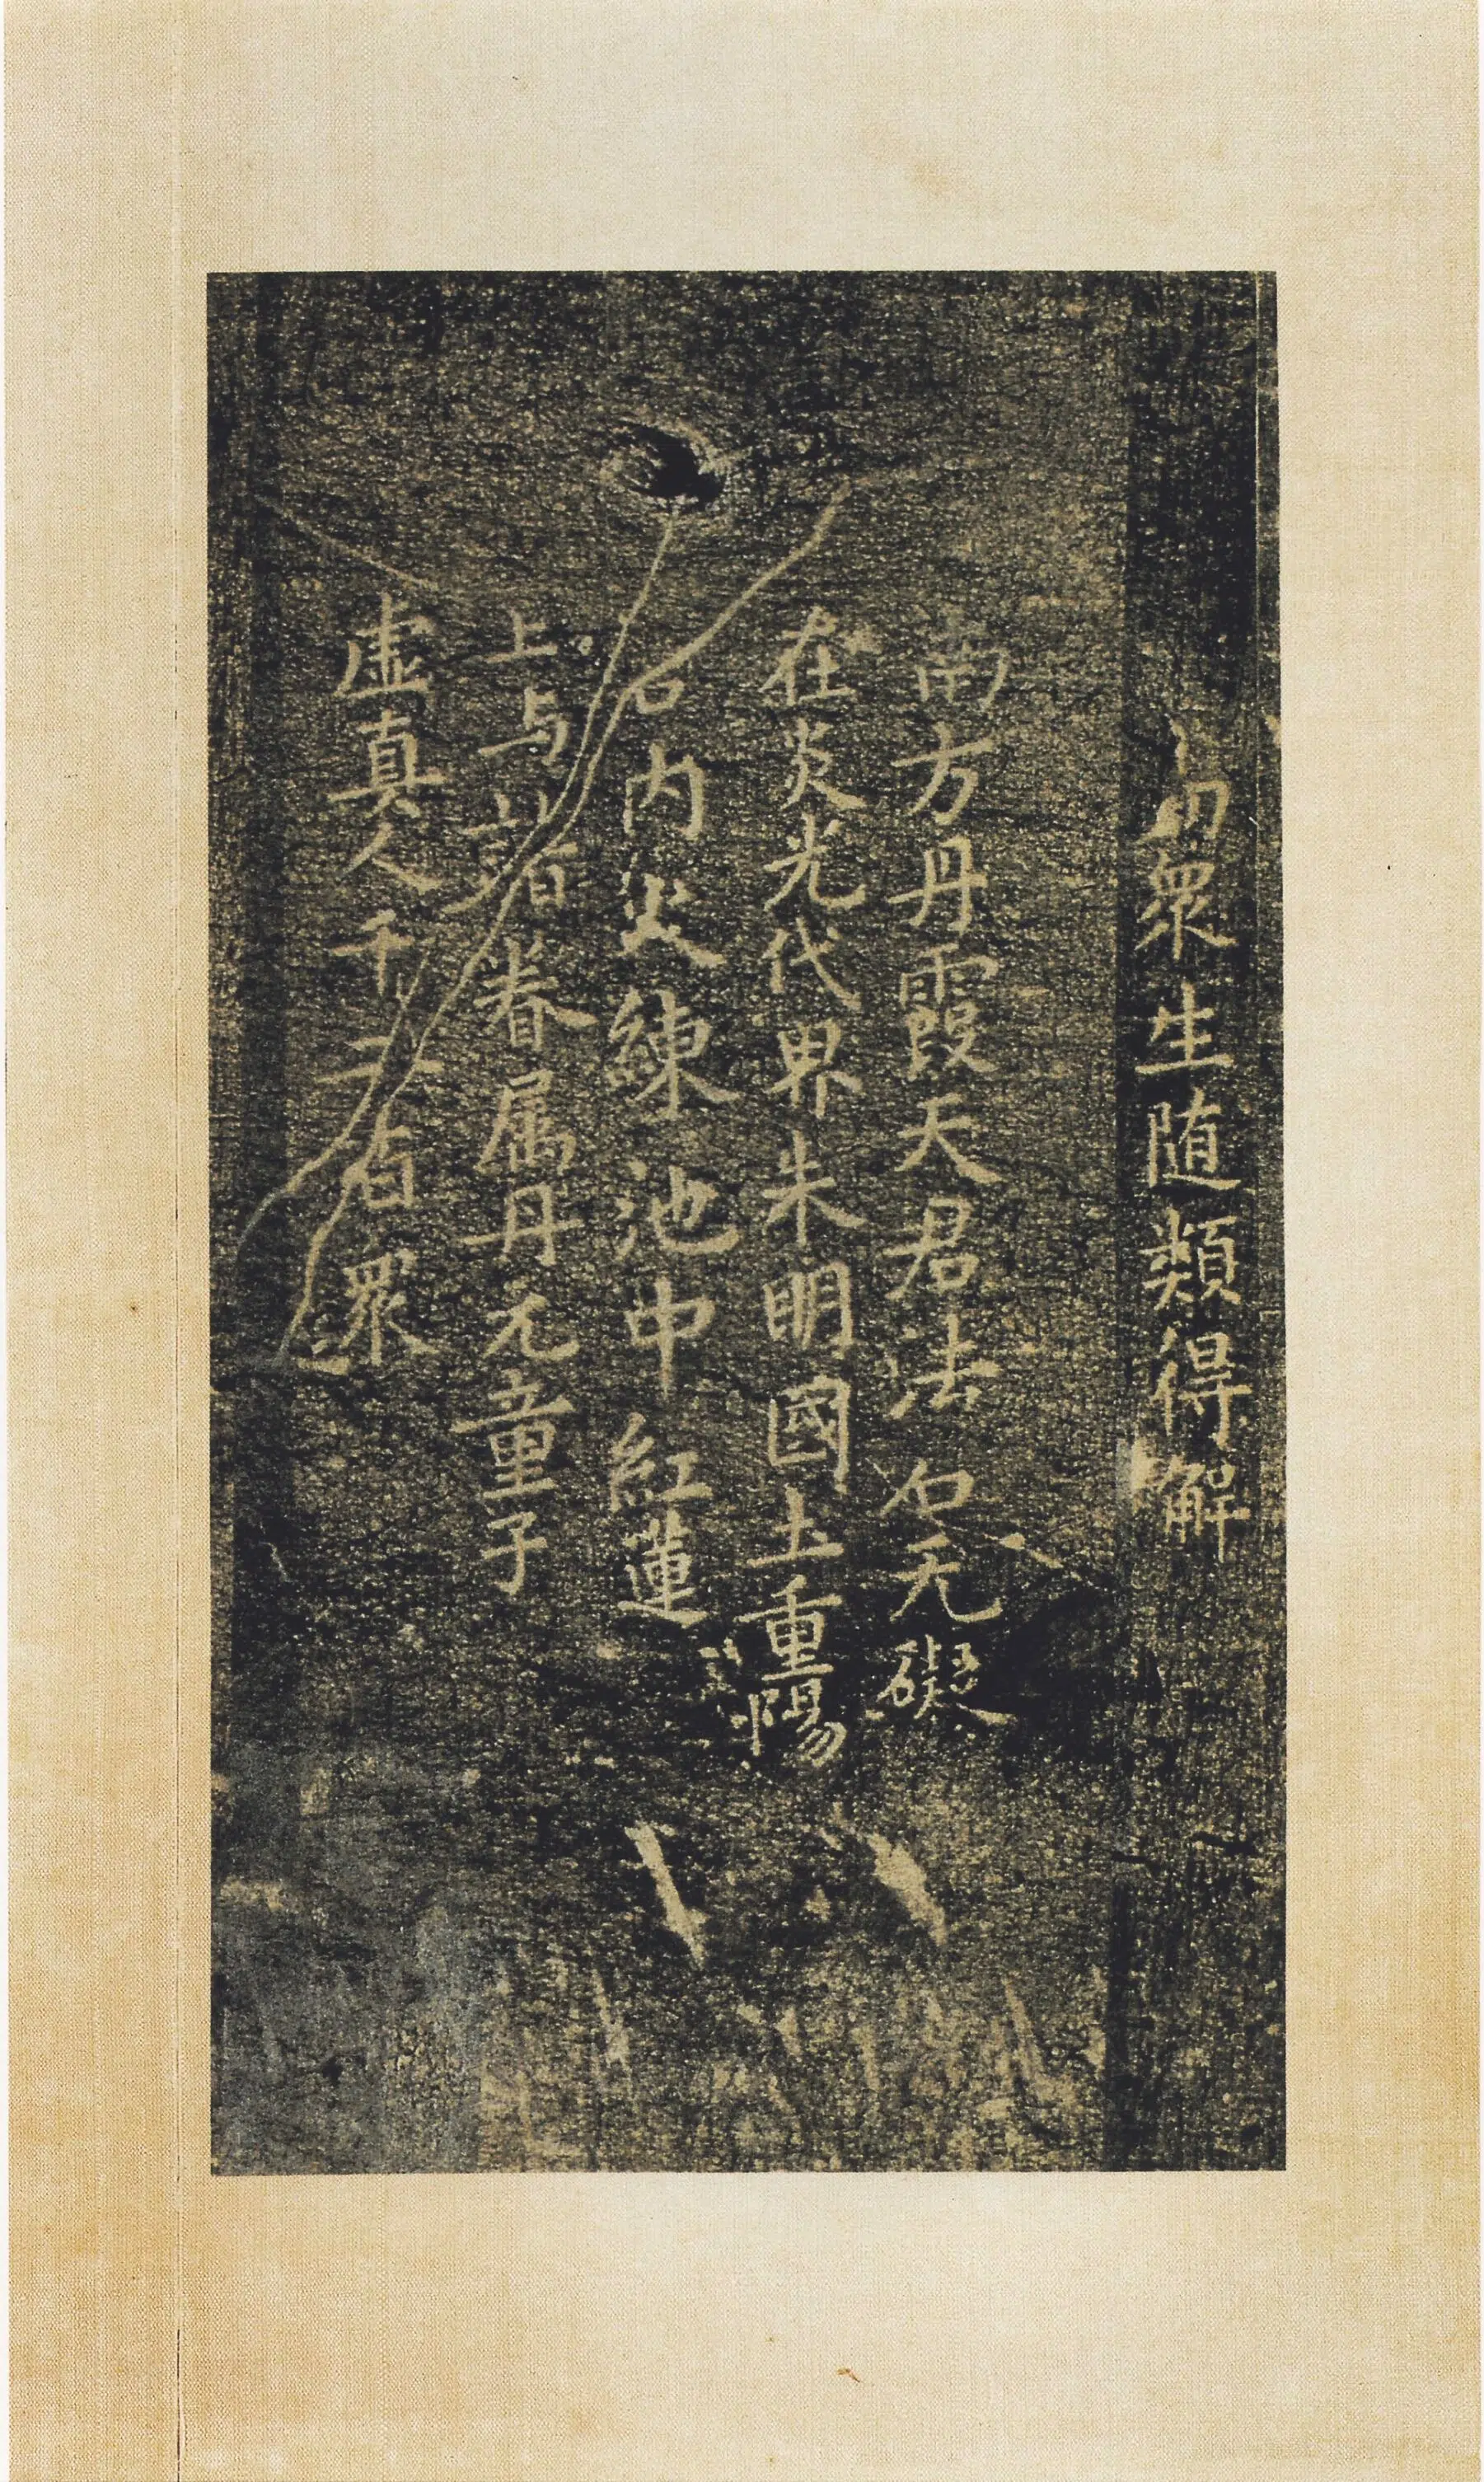 切衆生随類得解
南方丹霞天君法名无礙
在炎光代界朱明國土重陽
内火練池中紅蓮
上与諸眷属丹元童子
虚真人千二百衆